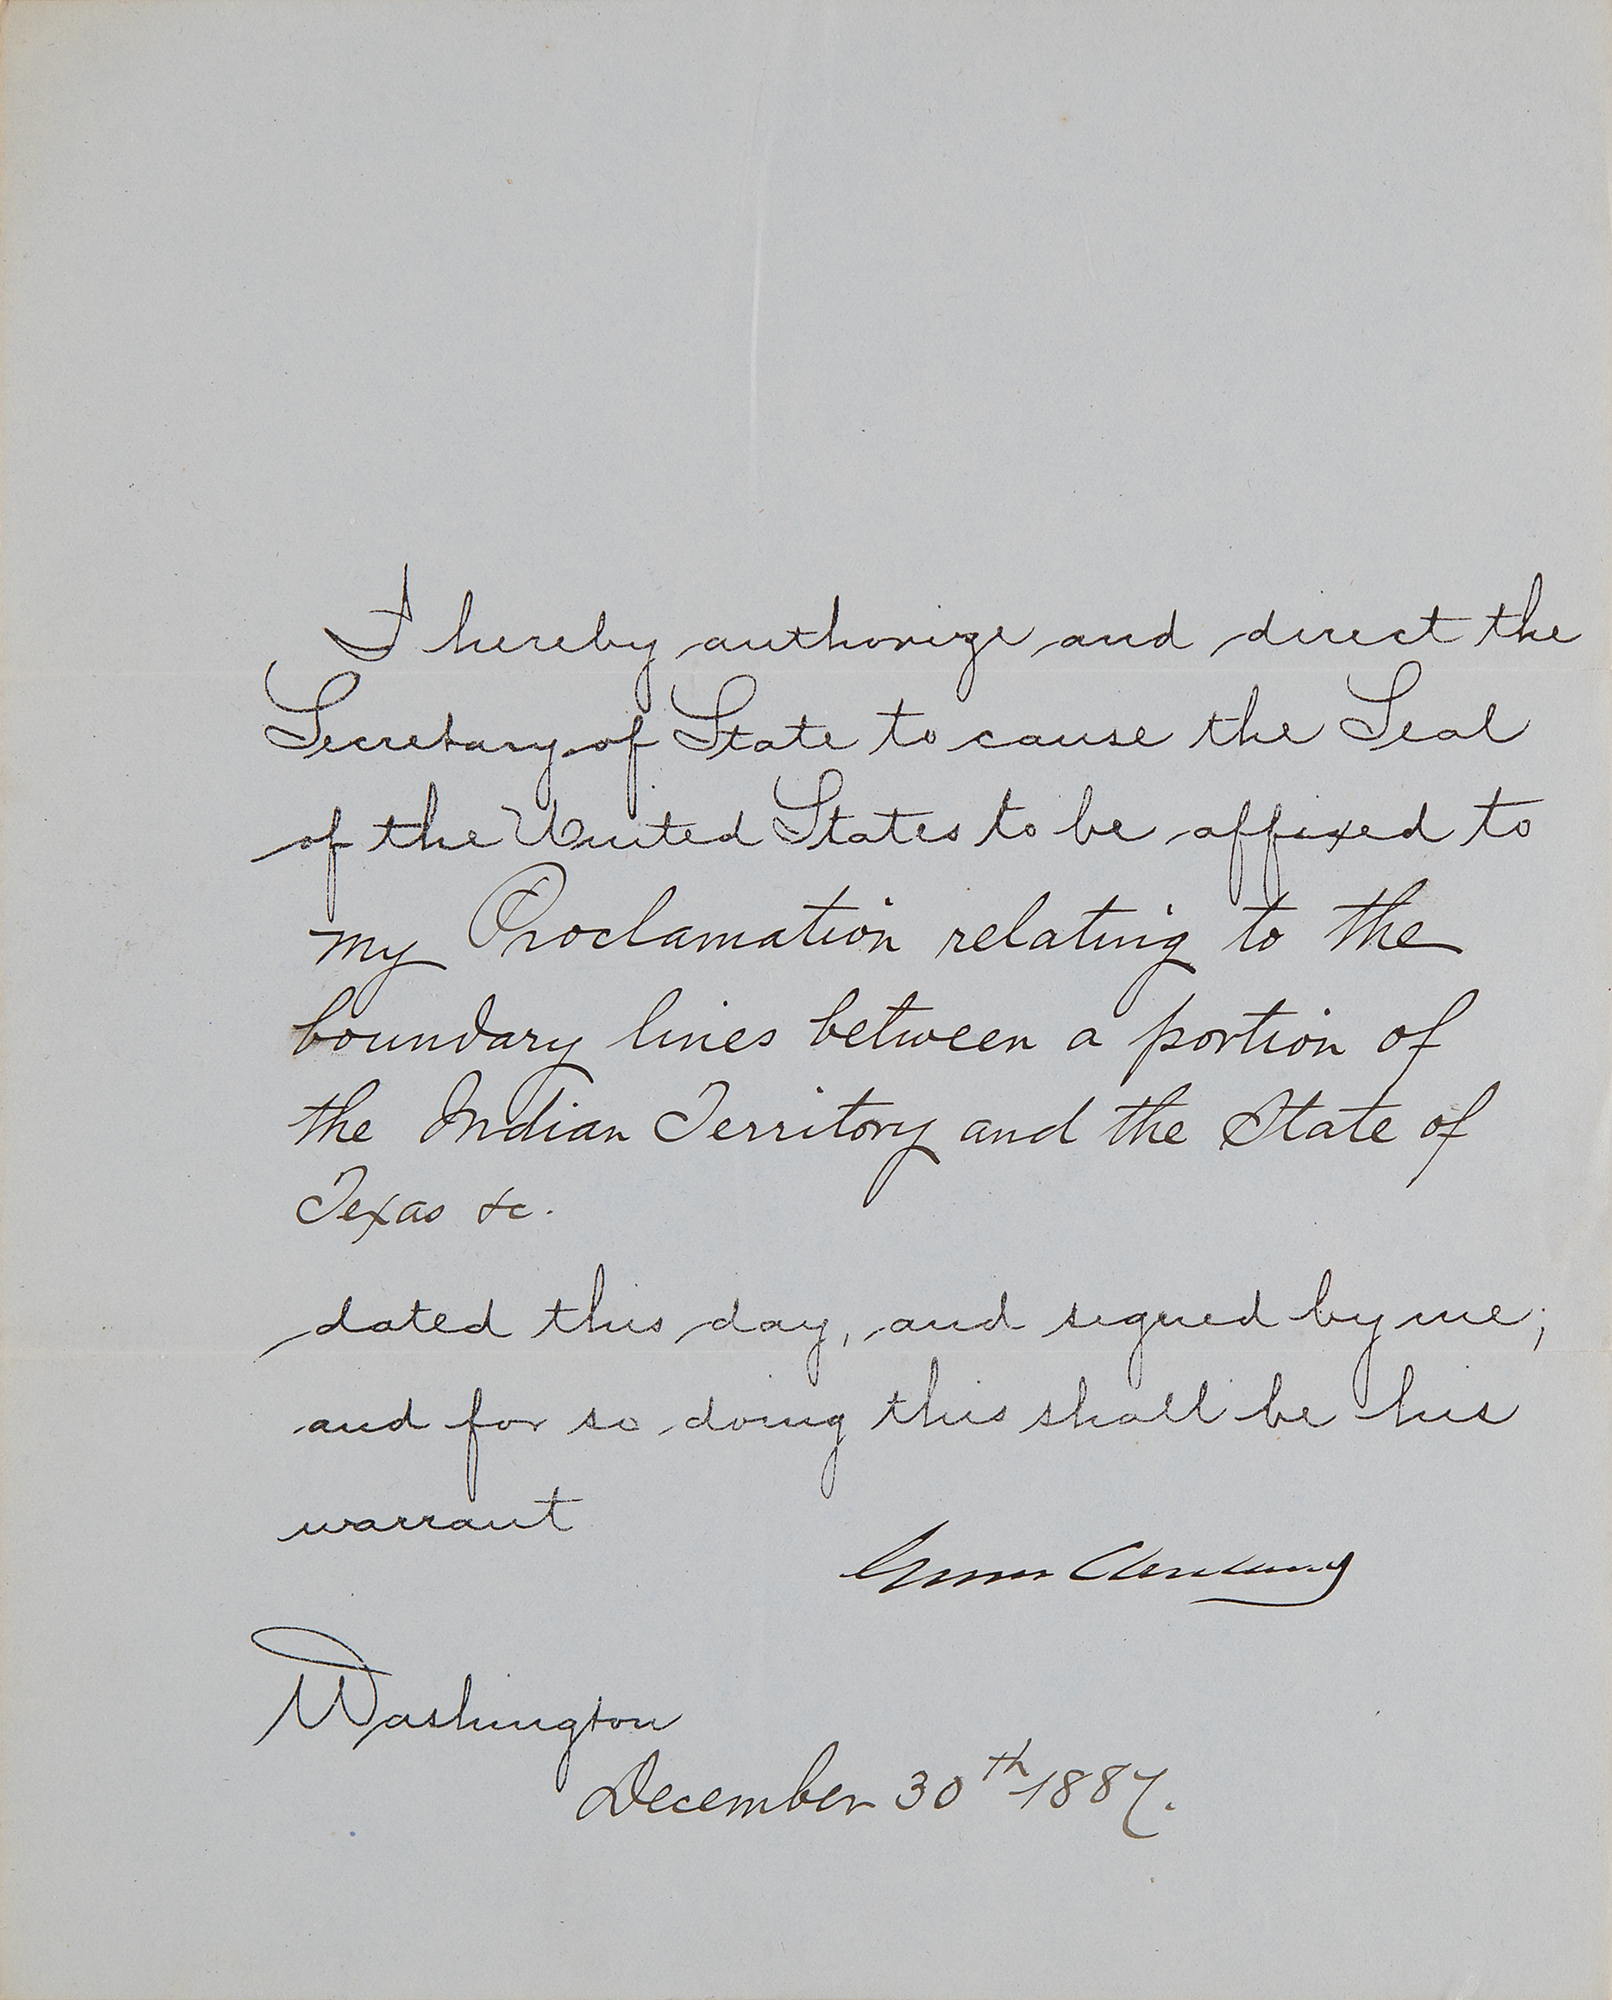 I hereby authorize and direct the
Secretary of State to cause the Seal
of the United States to be affixed to
my Proclamation relating to the
boundary lines between a portion of
the Indian Territory and the State of
Texas &c.
dated this day, and signed by me;
and for so doing this shall be his
warrant
Grover Cleveland
Washington
December 30th 1887.